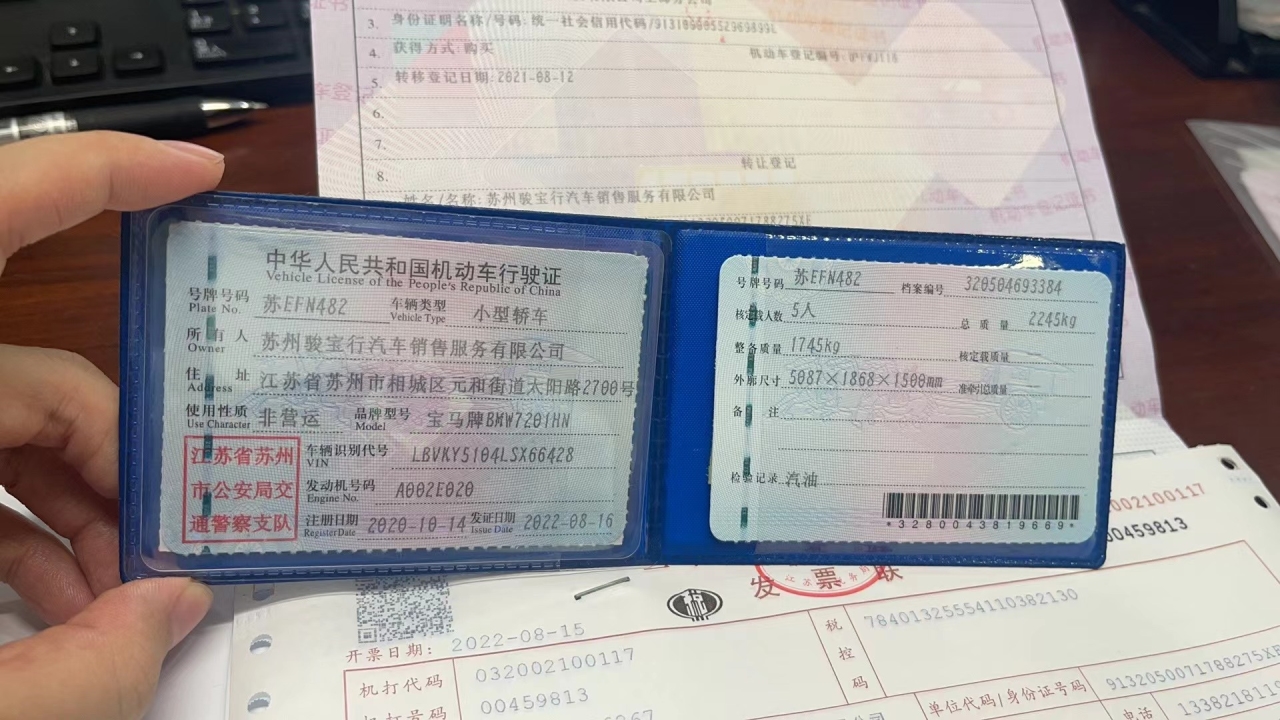 3. 身份证明名称/号码: 统一社会信用代码/
4. 获得方式: 购买 机动车登记编号:
5. 转移登记日期: 2021-08-12
6.
7.
转让登记
8.
姓名/名称: 苏州骏宝行汽车销售服务有限公司
中华人民共和国机动车行驶证
Vehicle License of the People's Republic of China
号牌号码 苏EFN482 车辆类型 小型轿车
Plate No. Vehicle Type
所有人 苏州骏宝行汽车销售服务有限公司
Owner
住址 江苏省苏州市相城区元和街道太阳路2700号
Address
使用性质 非营运 品牌型号 宝马牌BMW7201HN
Use Character Model
江苏省苏州
市公安局交
通警察支队
车辆识别代号 LBVKY5104LSX66428
VIN
发动机号码 A002E020
Engine No.
注册日期 2020-10-14 发证日期 2022-08-16
Register Date Issue Date
号牌号码 苏EFN482 档案编号 320504693384
核定载人数 5人 总质量 2245kg
整备质量 1745kg 核定载质量
外廓尺寸 5087×1868×1500 准牵引总质量
备注
检验记录 汽油
*3280043819669*
002100117
00459813
发票联
开票日期: 2022-08-15
机打代码 032002100117
机打号码 00459813
税控码 78401325554110382130
单位代码/身份证号码 9132050071788275XE
电话 133821811